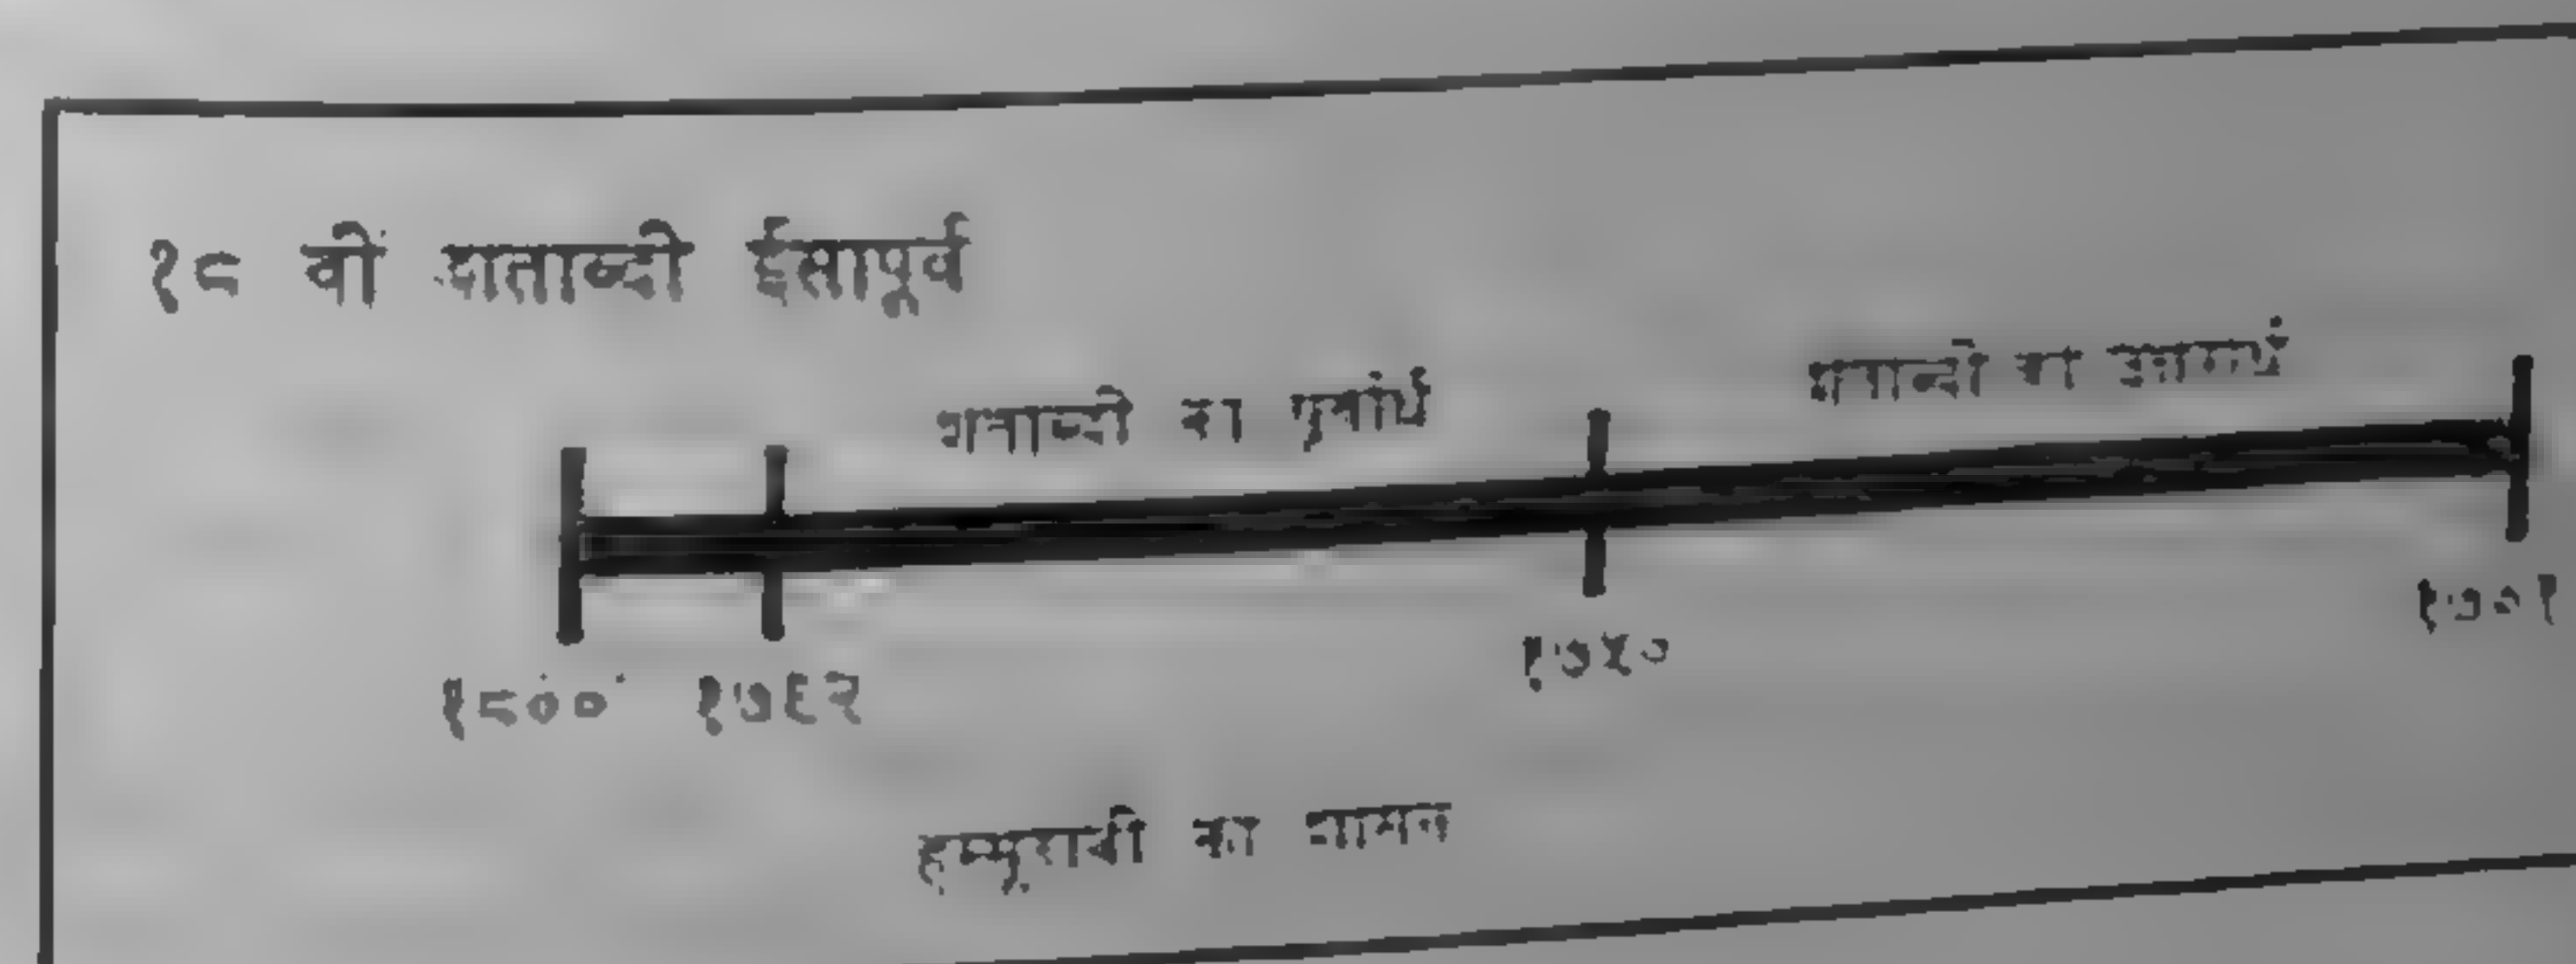 १८ वीं शताब्दी ईसापूर्व
शताब्दी का पूर्वार्ध
शताब्दी का उत्तरार्ध
१८०० १७९२ १७५० १७०१
हम्मूराबी का शासन